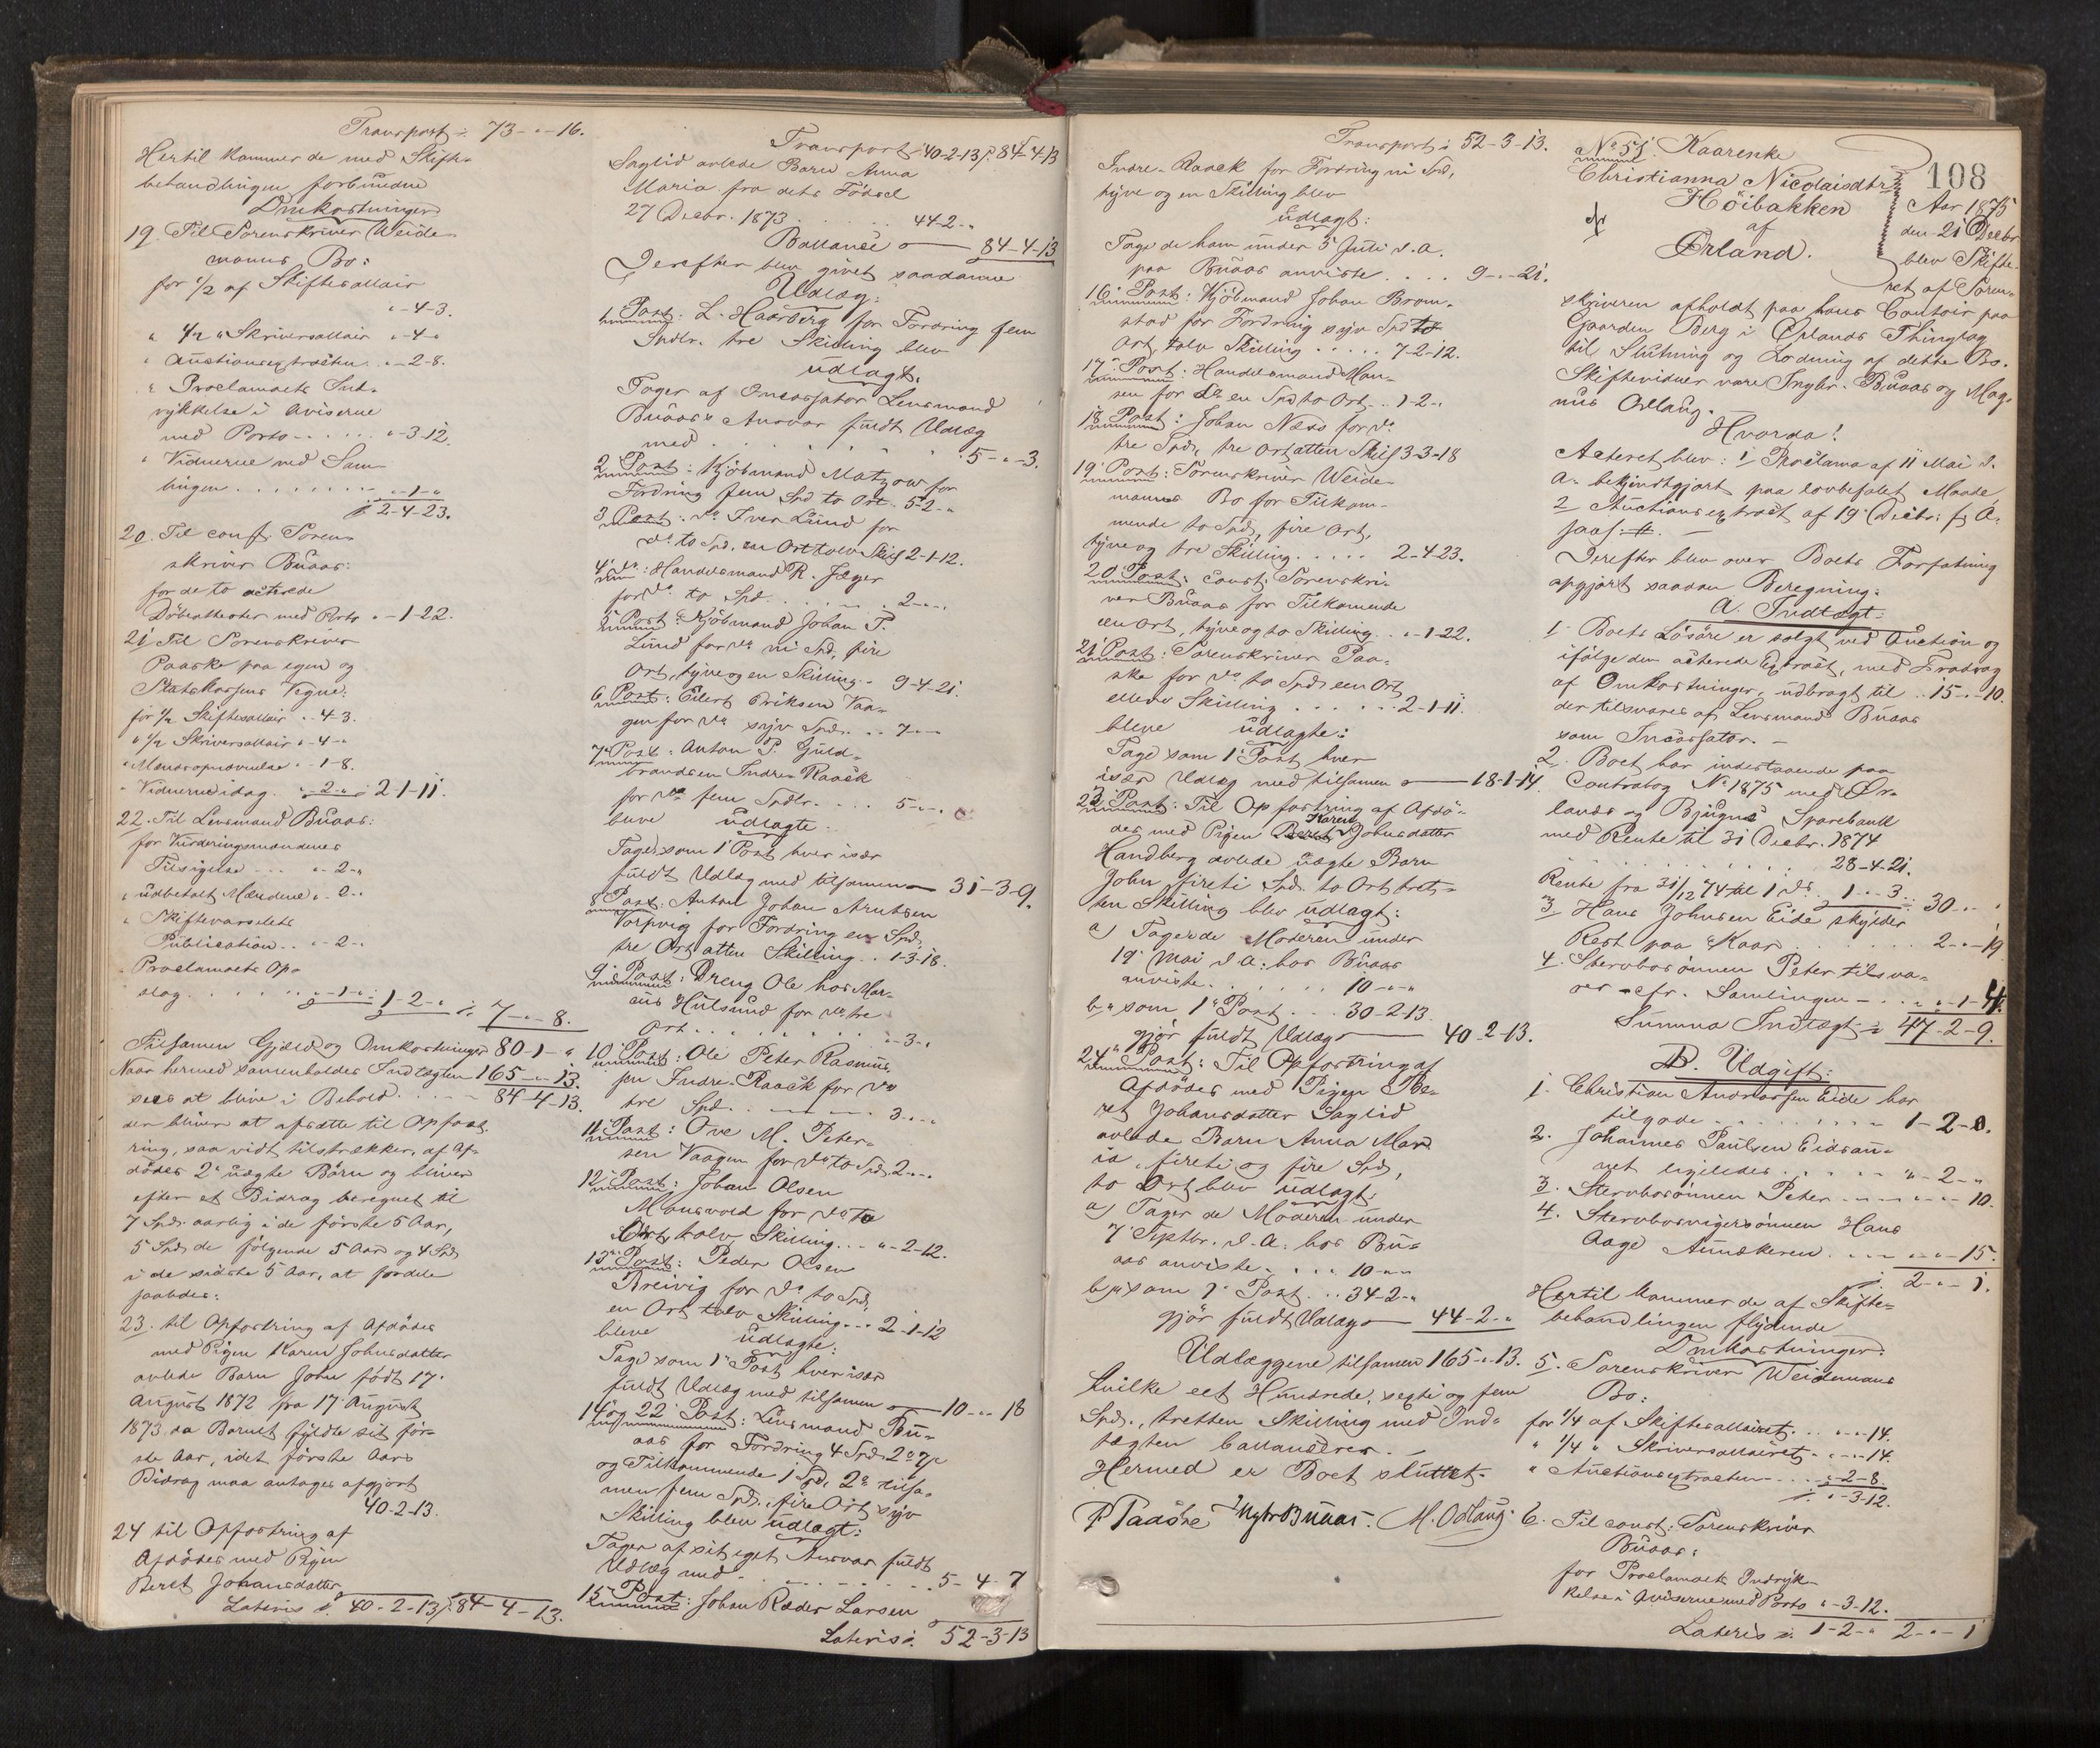 Transport ⁒ 73-"-16.
Hertil kommer de med Skifte-
behandlingen forbundne
Omkostninger
19. Til Sorenskriver Weide-
manns Bo:
for 1/2 af Skiftesallair
"-4-3.
" 1/2 " Skriversallair "-4-"
" Auctionsextracten "-2-8.
" Proclamaets Ind-
rykkelse i Aviserne
med Porto ..... "-3-12.
" Vidnerne ved Sam-
lingen ........ "-1-"
⁒ 2-4-23.
20. Til const. Soren-
skriver Buaas:
for de to acterede
Döbeattester med Porto "-1-22.
21 Til Sorenskriver
Paaske paa egen og
Statskassens Vegne:
for 1/2 Skiftesallair "-4-3.
" 1/2 Skriversallair "-4-"
" Mændsopnævnelse "-1-8.
" Vidnerne idag "-2-" ⁒ 2-1-11.
22. Til Lensmand Buaas:
for Vurderingsmændenes
Tilsigelse ... "-2-"
" udbetalt Mændene "-2-"
" Skiftevarselets
Publication .. "-2-"
" Proclamaets Op-
slag ...... "-1-" 1-2-" ⁒ 7-"-8.
Tilsamen Gjæld og Omkostninger 80-1-"
Naar hermed samenholdes Indtægten 165-"-13.
sees at blive i Behold .... 84-4-13.
der bliver at afsætte til Opfost-
ring, saavidt tilstrækker, af Af-
dödes 2de uægte Börn og bliver
efter et Bidrag beregnet til
7 Spd. aarlig i de förste 5 Aar,
5 Spd. de fölgende 5 Aar og 4 Spd.
i de sidste 5 Aar, at fordele
saaledes:
23. til Opfostring af Afdödes
med Pigen Karen Johnsdatter
avlede Barn John födt 17.
August 1872 fra 17 August
1873 da Barnet fyldte sit för-
ste Aar, idet förste Aars
Bidrag maa antages afgjort
40-2-13.
24 til Opfostring af
Afdödes med Pigen
Beret Johansdatter
Lateris ⁒ 40-2-13 ⁒ 84-4-13.
Transport 40-2-13 ⁒ 84-4-13
Saglid avlede Barn Anna
Maria fra dets Födsel
27 Decbr. 1873 ...... 44-2-"
Ballance 84-4-13
Derefter blev givet saadanne
Udlæg:
1 Post: L. Haarberg for Fordring fem
Spdlr. tre Skilling blev
udlagt.
Tager af Incassator Lensmand
Buaas's Ansvar fuldt Udlæg
med ........ 5-"-3.
2 Post: Kjöbmand Matzow for
Fordring fem Spd to Ort 5-2-"
3 Post: do Iver Lund for
do to Spd. en Ort tolv Skill 2-1-12.
4 do: Handelsmand R. Jæger
for do to Spd. ..... 2-"-"
5 Post: Kjöbmand Johan P.
Lund for do ni Spd, fire
Ort, tyve og en Skilling 9-4-21.
6 Post: Eilert Eriksen Vaa-
gen for do syv Spd. .. 7-"-"
7 Post: Anton P. Guld-
brandsen Indre-Raack
for do fem Spdlr. .... 5-"-"
bleve udlagte:
Tager som 1 Post hver især
fuldt Udlæg med tilsamen 31-3-9.
8 Post: Anton Johan Arntsen
Vorpvig for Fordring en Spd,
tre Ort atten Skilling .. 1-3-18.
9 Post: Dreng Ole hos Mar-
cus Hulsund for do tre
Ort .......... "-3-"
10 Post: Ole Peter Rasmus-
sen Indre-Raack for do
tre Spd. ........ 3-"-"
11 Post: Ove M. Peter-
sen Vaagen for do to Spd. 2-"-"
12 Post: Johan Olsen
Monsvold for do to
Ort, tolv Skilling ... "-2-12.
13 Post: Peder Olsen
Breivig for do to Spd,
en Ort tolv Skilling ... 2-1-12
bleve udlagte:
Tage som 1 Post hver især
fuldt Udlæg med tilsamen 10-"-18
14 og 22 Post: Lensmand Bu-
aas for Fordring 4 Spd. 2 o 7 s
og Tilkommende 1 Spd. 2 o tilsa-
men fem Spd. fire Ort syv
Skilling blev udlagt:
Tager af sit eget Ansvar fuldt
Udlæg med ........ 5-4-7
15 Post: Johan Reder Larsen
Lateris ⁒ 52-3-13
Transport ⁒ 52-3-13.
Indre-Raack for Fordring ni Spd,
tyve og en Skilling blev
udlagt:
Tage de ham under 5 Juli d. A.
paa Buaas anviste .... 9-"-21.
16 Post: Kjöbmand Johan Brom-
stad for Fordring syv Spd to
Ort, tolv Skilling ..... 7-2-12.
17 Post: Handelsmand Han-
sen for do en Spd to Ort .. 1-2-"
18 Post: Johan Næss for do
tre Spd, tre Ort atten Skill 3-3-18
19 Post: Sorenskriver Weide-
manns Bo for Tilkom-
mende to Spd, fire Ort,
tyve og tre Skilling ..... 2-4-23.
20 Post: Const. Sorenskri-
ver Buaas for Tilkomende
een Ort, tyve og to Skilling .. "-1-22.
21 Post: Sorenskriver Paa-
ske for do to Spd. een Ort
elleve Skilling ..... 2-1-11.
bleve udlagte:
Tage som 1 Post hver
især Udlæg med tilsamen 18-1-14.
23 Post: Til Opfostring af Afdö-
des med Pigen Karen Johnsdatter
Handberg avlede uægte Barn
John firti Spd. to Ort tret-
ten Skilling blev udlagt:
a) Tager de Moderen under
19 Mai d. A. hos Buaas
anviste ...... 10-"-"
b) som 1 Post ... 30-2-13.
gjör fuldt Udlæg 40-2-13.
24 Post: Til Opfostring af
Afdödes med Pigen Be-
ret Johansdatter Saglid
avlede Barn Anna Mar-
ia, firti og fire Spd,
to Ort blev udlagt:
a) Tager de Moderen under
7 Septbr. d. A. hos Bu-
aas anviste ..... 10-"-"
b) som 1 Post ... 34-2-"
gjör fuldt Udlæg 44-2-"
Udlæggene tilsamen 165-"-13.
hvilke eet Hundrede, sexti og fem
Spd., tretten Skilling med Ind-
tægten ballancerer.
Hermed er Boet sluttet.
P Paaske IngbrBuaas. M. Odlaug.
108
No 51. Kaarenke
Christianna Nicolaisdtr
Höibakken
af
Ørland.
Aar 1875
den 21 Decbr
blev Skifte-
ret af Soren-
skriveren afholdt paa hans Contoir paa
Gaarden Berg i Ørlands Thinglag
til Slutning og Lodning af dette Bo.
Skiftevidner vare Ingbr. Buaas og Mag-
nus Odlaug.
Hvorda!
Acteret blev: 1 Proclama af 11 Mai d.
A. bekjendtgjort paa lovbefalet Maade
2 Auctionsextract af 19 Decbr. f. A.
saal: #.
Derefter blev over Boets Forfatning
opgjort saadan Beregning:
A. Indtægt:
1. Boets Lösöre er solgt ved Auction og
ifölge den acterede Extract, med Fradrag
af Omkostninger, udbragt til .. 15-"-10.
der tilsvares af Lensmand Buaas
som Incassator. -
2. Boet har indestaaende paa
Contrabog No 1875 med Ør-
lands og Bjugns Sparebank
med Rente til 31 Decbr. 1874
......... 28-4-21.
Rente fra 31/12 74 til 1 d. 1-"-3 ⁒ 30-"-"
3 Hans Johnsen Eide skylder
Rest paa Kaar ....... 2-"-19
4. Stervbosönnen Peter tilsva-
rer cfr. Samlingen ... "-1-4.
Summa Indtægt ⁒ 47-2-9.
B. Udgift:
1. Christian Andreassen Eide har
tilgode ........ 1-2-0.
2. Johannes Paulsen Eidsau-
net ligeledes ..... "-2-"
3. Stervbosönnen Peter ....... 10.
4. Stervbosvigersönnen Hans
Aage Aunækeren ..... "-"-15.
⁒ 2-"-1.
Hertil kommer de af Skifte-
behandlingen flydende
Omkostninger:
5. Sorenskriver Weidemans
Bo:
for 1/4 af Skiftesallairet ... "-"-14.
" 1/4 " Skriversallairet ... "-"-14.
" Auctionsextracten .... "-2-8
⁒ "-3-12.
6. Til const. Sorenskriver
Buaas:
for Proclamaets Indryk-
kelse i Aviserne med Porto "-3-12.
Lateris ⁒ 1-2-" 2-"-1